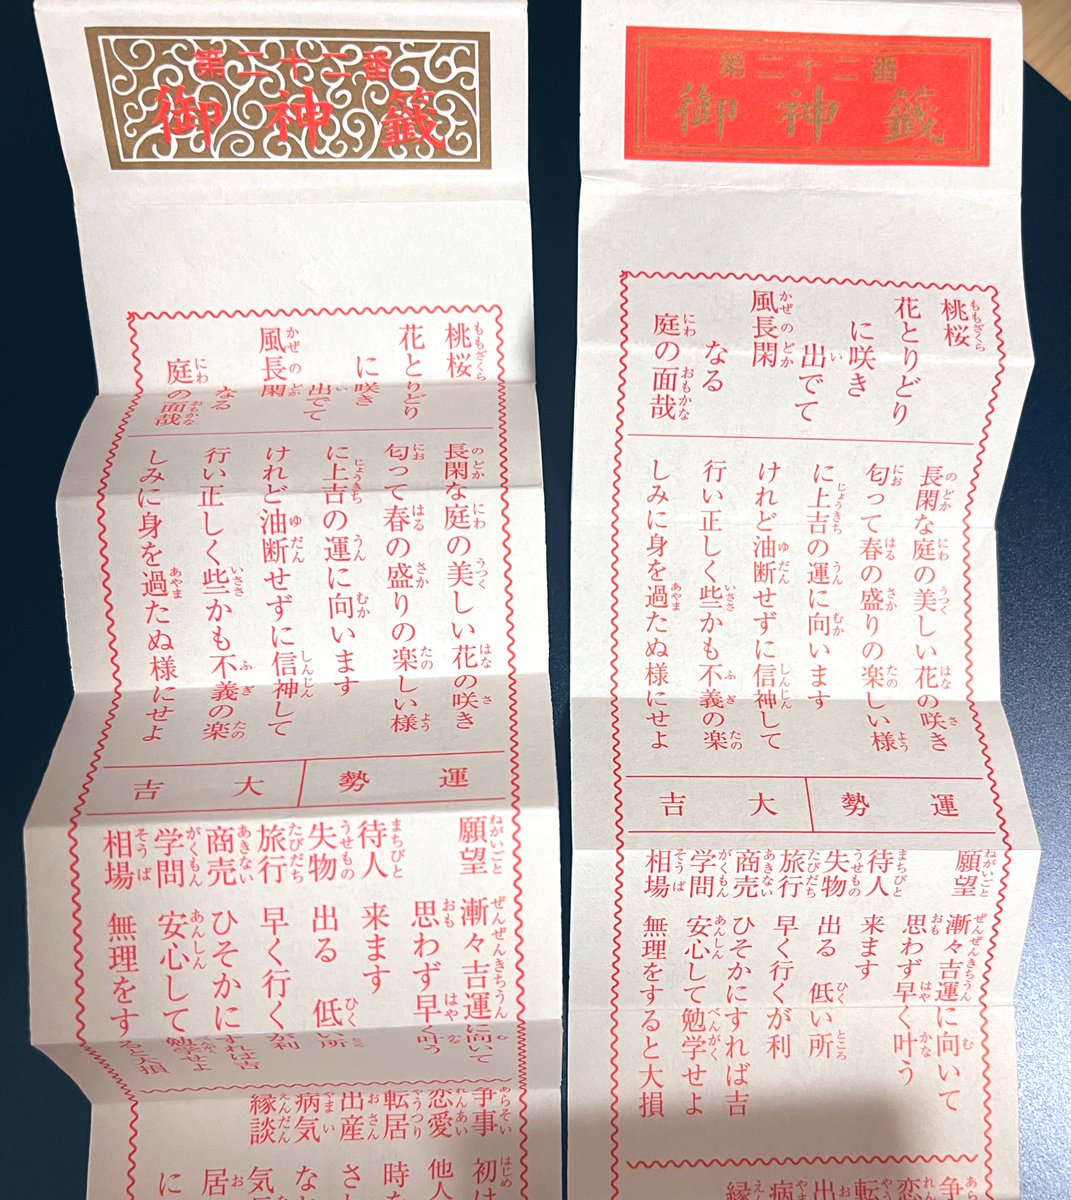 第二十二番
御神籤
桃桜
花とりどり
に咲き
出でて
風長閑
なる
庭の面哉
長閑な庭の美しい花の咲き
匂って春の盛りの楽しい様
に上吉の運に向います
けれど油断せずに信神して
行い正しく些かも不義の楽
しみに身を過たぬ様にせよ
運勢 大吉
願望 漸々吉運に向いて
思わず早く叶う
待人 来ます
失物 出る 低い所
旅行 早く行くが利
商売 ひそかにすれば吉
学問 安心して勉学せよ
相場 無理をすると大損
争事 初は
恋愛 他人
転居 時
出産 さ
病気 な
縁談 気
居
に
第二十二番
御神籤
桃桜
花とりどり
に咲き
出でて
風長閑
なる
庭の面哉
長閑な庭の美しい花の咲き
匂って春の盛りの楽しい様
に上吉の運に向います
けれど油断せずに信神して
行い正しく些かも不義の楽
しみに身を過たぬ様にせよ
運勢 大吉
願望 漸々吉運に向いて
思わず早く叶う
待人 来ます
失物 出る 低い所
旅行 早く行くが利
商売 ひそかにすれば吉
学問 安心して勉学せよ
相場 無理をすると大損
争
恋
転
出
病
縁